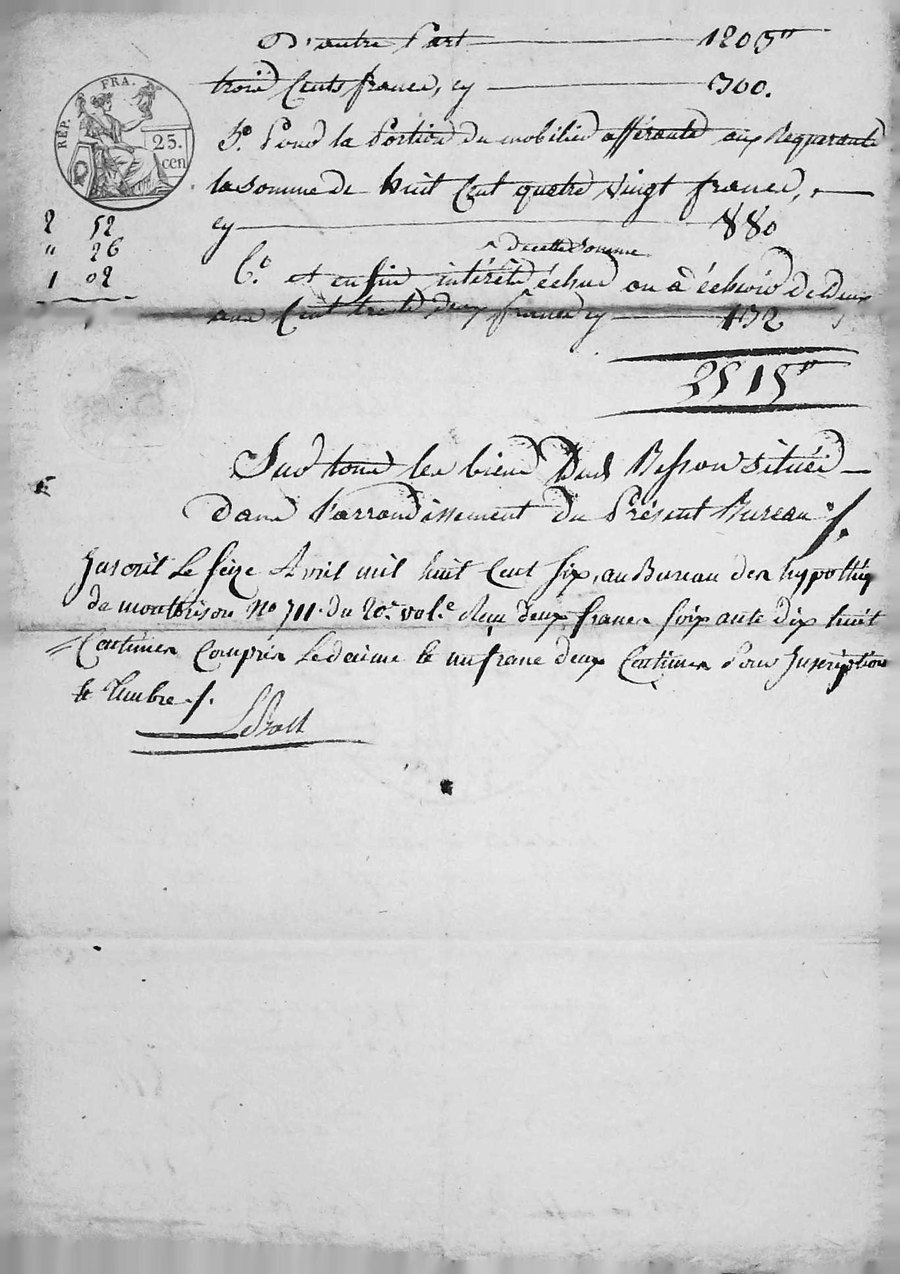 D'autre Part 1203"
trois Cents francs, cy 300.
5.º Pour la Portion du mobilier afférante aux Requerants
la Somme de huit Cent quatre vingt francs,
cy 880
de cette Somme
6.º et enfin intérêts échus ou à échoir de deux
ans Cent trente deux francs cy 132
2515"
RÉP. FRA.
25.
cen
2 52
" 26
1 02
Sur tous les biens Besson situés
dans l'arrondissement du Présent Bureau /.
Inscrit Le Seize Avril mil huit Cent Six, au Bureau des hypothèq
de montbrison Nº 711. du 20.e vol.e Reçu deux francs Soixante dix huit
Centimes Compris un franc deux Centimes Pour Inscription
& Timbre /.